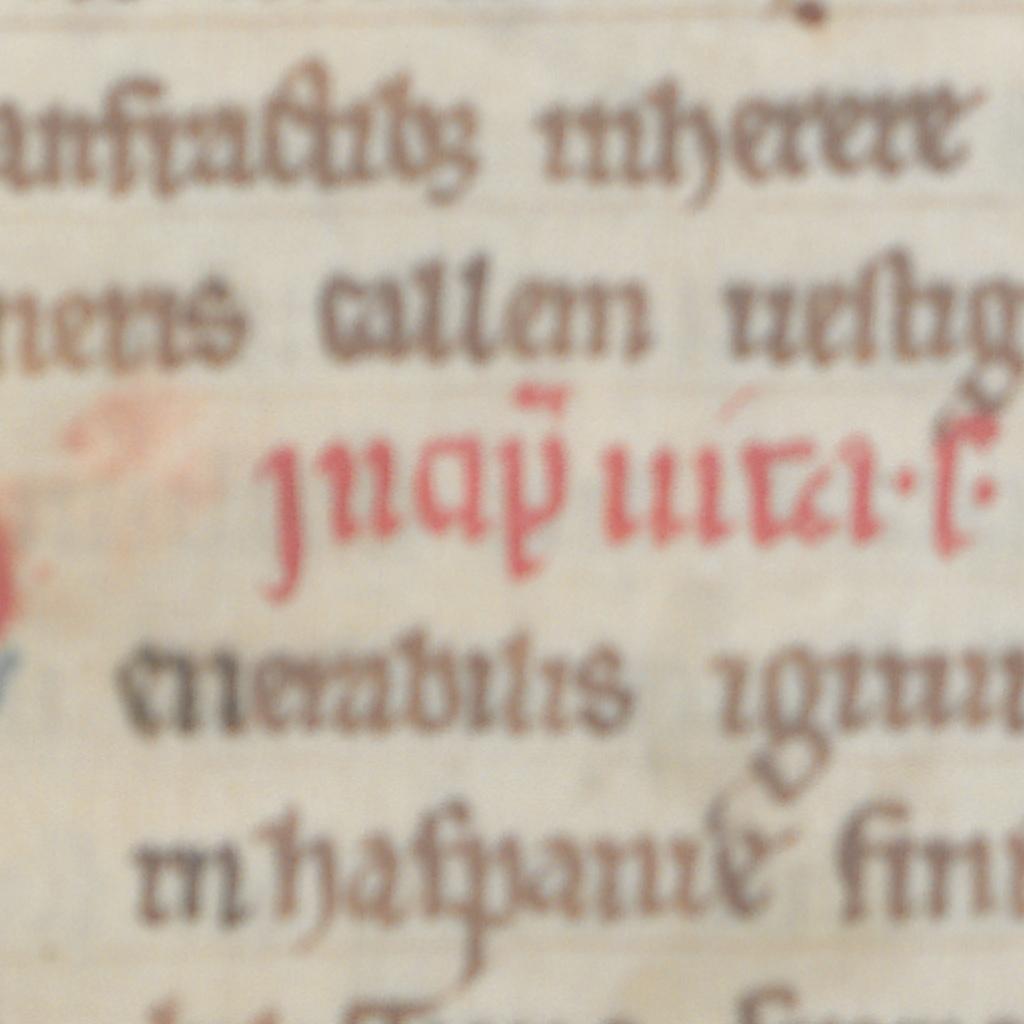 anfractibꝫ inherere
neris callem uestig
Incip̃ uita·s·
enerabilis igitur
in haspanie fini